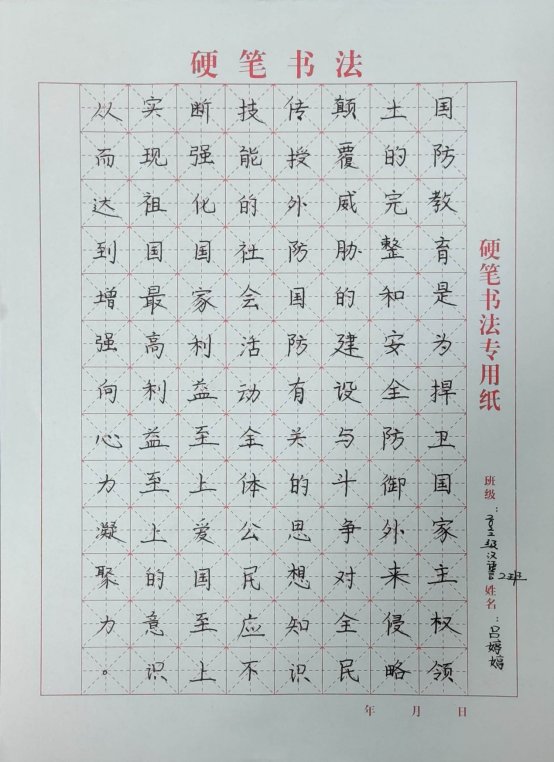 硬笔书法
国防教育是为捍卫国家主权领
土的完整和安全防御外来侵略
颠覆威胁的建设与斗争对全民
传授外防国防有关的思想知识
技能的社会活动全体公民应不
断强化国家利益至上爱国至上
实现祖国最高利益至上的意识
从而达到增强向心力凝聚力。
硬笔书法专用纸
班级：2班 姓名：吕婷婷
年 月 日